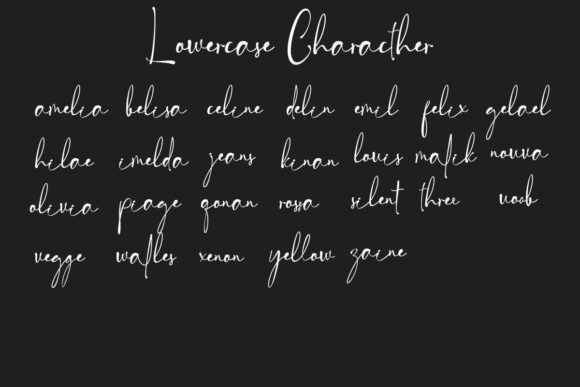 Lowercase Characther
amelia belisa celine delin emil felix gelael
hilae imelda jeans kinan louis malik nouva
olivia piage qonan rossa silent three uoob
vegge walles xenon yellow zaine